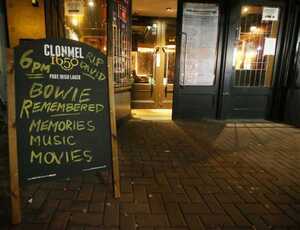 CLONMEL
1650
PURE IRISH LAGER
6PM
RIP
DAVID
BOWIE
REMEMBERED
MEMORIES
MUSIC
MOVIES